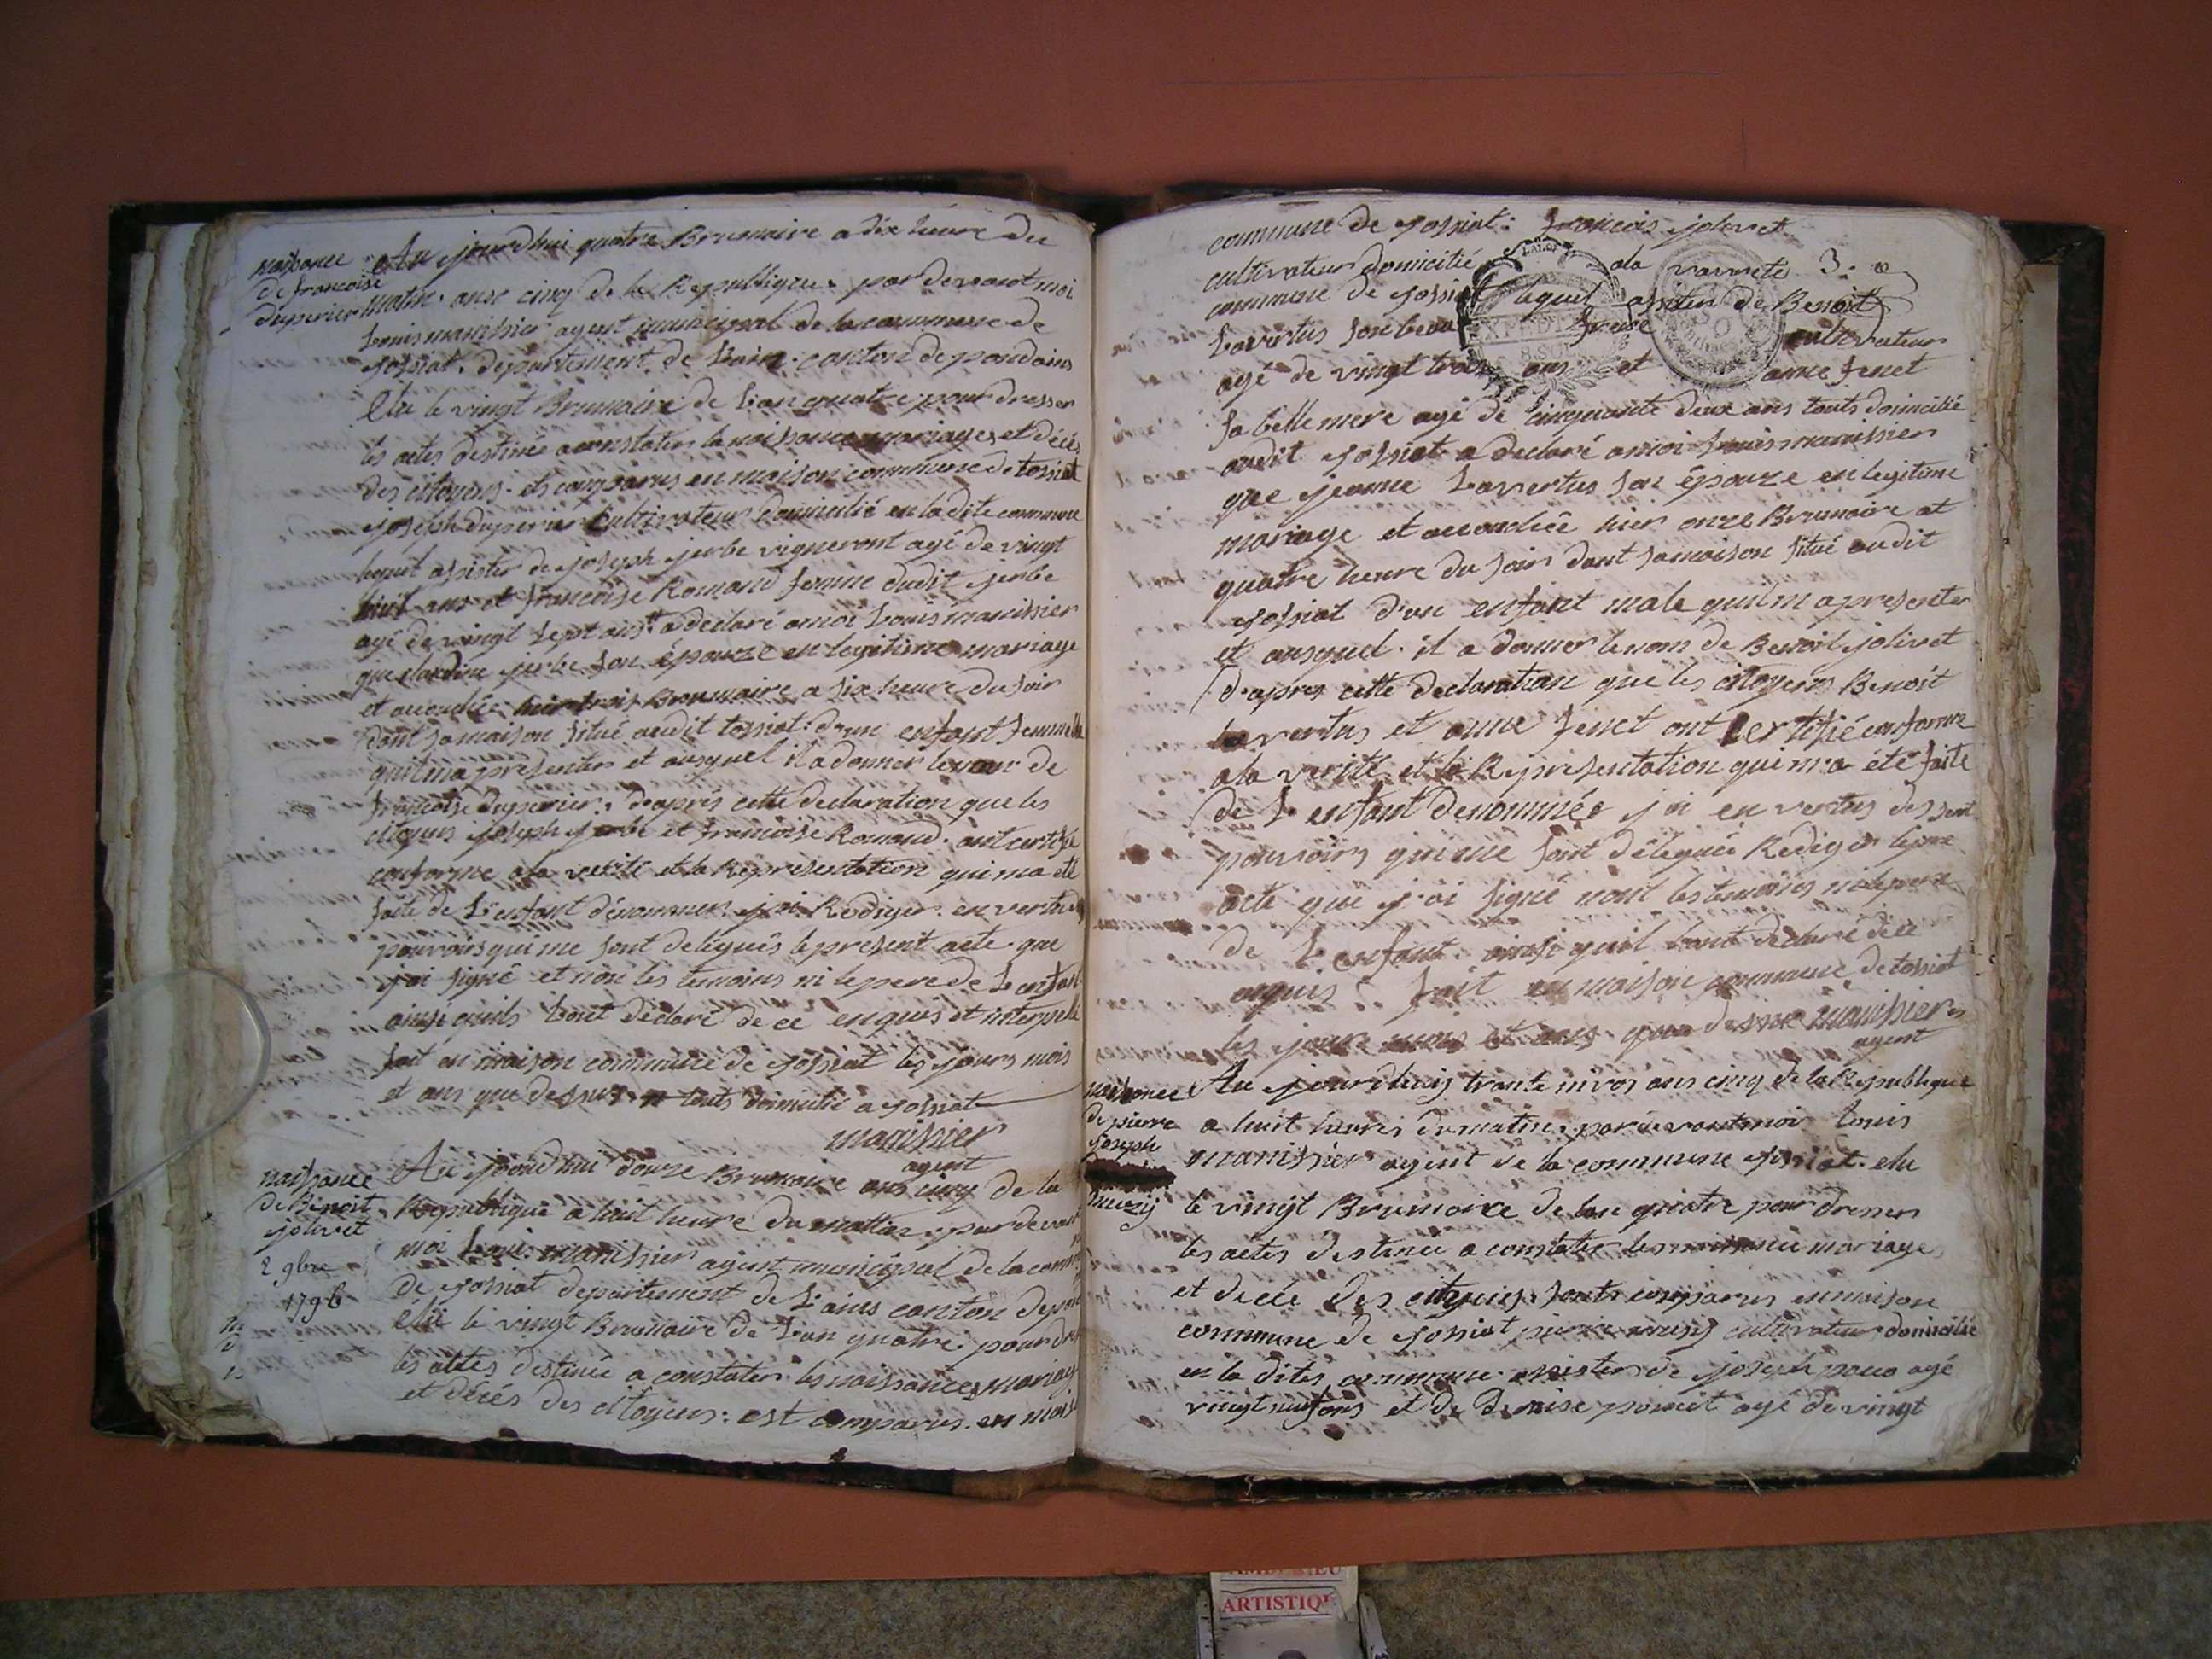 naissance
de francoise
duperier
Au jourdhui quatre Brumaire a dix heure du
matin. anse cinq de la Republique. par devant moi
Louis manissier agent municipal de la commune de
tossiat. departement de Lain. canton de pondains
Elu le vingt Brumaire de Lan quatre pour dresser
les actes destinée a constater la naissance mariages et décès
des citoyens. ets comparus en maison commune de tossiat
joseph duperier cultivateur domicilié en la dite commune
lequel assister de joseph jerbe vigneront agé de vingt
huit ans et francoise Romand femme dudit jerbe
agé de vingt sept ans a declaré a moi Louis manissier
que claudine jerbe son épouze en legitime mariage
et accouchée hier trois Brumaire a six heure du soir
dant sa maison situé audit tossiat. d'un enfant femmelle
quil ma presenter et ausquel il a donner le nom de
francoise duperier. d'apris cette declaration que les
citoyens joseph jerbe et francoise Romand. ont certifié
conforme a la verité et la Representation qui ma eté
faite de L'enfant dénommer. j'ai Rediger. en vertu des
pouvoirs qui me sont delegués le present acte. que
j'ai signé et non les temoins ni le pere de L'enfant
ainsi quils l'ont déclaré de ce enquis et interpellé
fait en maison commune de tossiat les jours mois
et ans que dessus touts domicilié a tossiat
manissier
agent
naissance
de Benoit
jolivet
2 9bre
1796
Au jourd'hui douze Brumaire ans cinq de la
Republique a huit heure du mattin. par devant
moi Loui manissier agent municipal de la comm
de tossiat departement de L'ains canton de pon
Elu le vingt Brumaire de L'an quatre. pour dre
les actes destinée a constater les naissances mariage
et décés des citoyens. est comparus. en mais
commune de tossiat: francois jolivet
cultivateur domicilié a la varnete 3:
commune de tossiat lequel assister de Benoit
Lavertus son beau freure cultivateur
agé de vingt trois ans et anne fenet
sa belle mere agé de cinquante deux ans touts domicilié
audit tossiat a declaré a moi Louis manissier
que jeanne Lavertus son épouze en legitime
mariage et accouchée hier onze Brumaire at
quatre heure du soir dant sa maison situé audit
tossiat d'un enfant male quil m a presenter
et ausquel. il a donner le nom de Benoit jolivet
d'apres cette declaration que les citoyens Benoit
lavertus et anne fenet ont certifié conforme
a la verité et la Representation qui m'a été faite
de L enfant denommée j'ai en vertus des
pouvoirs qui me sont délegués Rediger le pre
acte que j'ai signé nont les temoins ni le pere
de L'enfant ainsi quil l'ont declaré de ce
enquis fait en maison commune de tossiat
les jour mois et ans que dessus manissier
agent
naissance
de pierre
joseph
muzy
Au jourdhuis trante nivos ans cinq de la Republique
a huit heures du matin par devant moi Louis
manissier agent de la commune tossiat. elu
le vingt Brumaire de lan quatre pour dresser
les actes destinée a constater les naissance mariage
et décée des citoyens. sont comparus en maison
commune de tossiat pierre muzy cultivateur domicilié
en la dites commune. assister de joseph agé
vingt neuf ans et de Denise agé de vingt
ARTISTIQUE